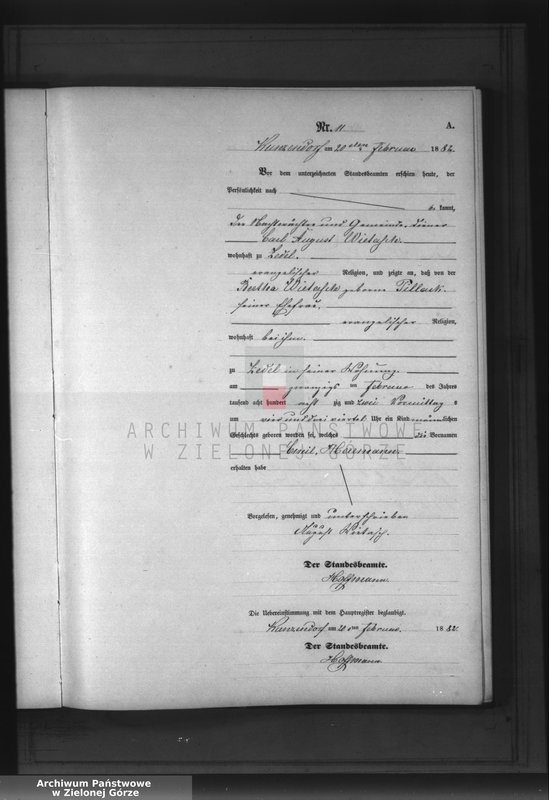 Nr. 11
A.
Kunzendorf am 20 ten Februar 1882.
Vor dem unterzeichneten Standesbeamten erschien heute, der
Persönlichkeit nach
be kannt,
der Nachtwächter und Gemeinde diener
Carl August
wohnhaft zu Zedel.
evangelischer Religion, und zeigte an, daß von der
Bertha geborene Tillack
seiner Ehefrau.
evangelischer Religion,
wohnhaft bei ihm.
zu Zedel in seiner Wohnung
am zwanzigs ten Februar des Jahres
tausend acht hundert acht zig und zwei Vormittag s
um vier und drei viertel Uhr ein Kind männlichen
Geschlechts geboren worden sei, welches die Vornamen
Emil Hermann
erhalten habe
Vorgelesen, genehmigt und unterschrieben
August
Der Standesbeamte.
Hoffmann
Die Uebereinstimmung mit dem Hauptregister beglaubigt.
Kunzendorf am 20 ten Februar 1882.
Der Standesbeamte.
Hoffmann
ARCHIWUM PAŃSTWOWE
W ZIELONEJ GÓRZE
Archiwum Państwowe
w Zielonej Górze